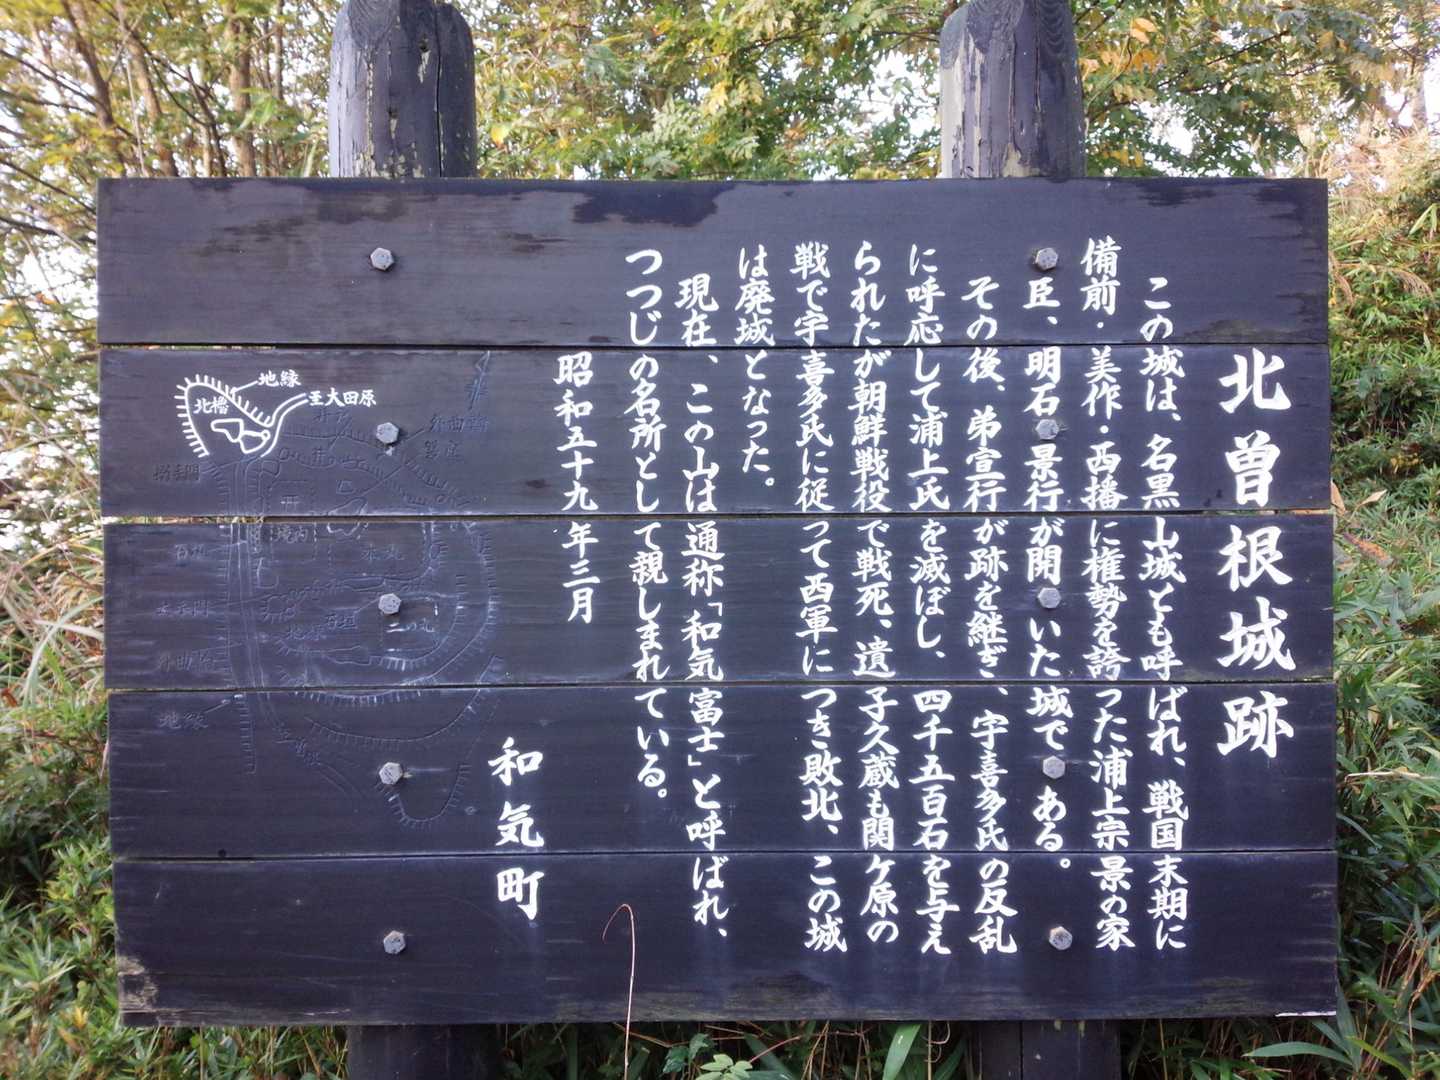 北曽根城跡
この城は、名黒山城とも呼ばれ、戦国末期に
備前・美作・西播に権勢を誇った浦上宗景の家
臣、明石景行が開いた城である。
その後、弟宣行が跡を継ぎ、宇喜多氏の反乱
に呼応して浦上氏を滅ぼし、四千五百石を与え
られたが朝鮮戦役で戦死、遺子久蔵も関ケ原の
戦で宇喜多氏に従って西軍につき敗北、この城
は廃城となった。
現在、この山は通称「和気富士」と呼ばれ、
つつじの名所として親しまれている。
昭和五十九年三月
和気町
地縁
至大田原
北櫓
外曲輪
井戸
境内
本丸
二の丸
石垣
地縁